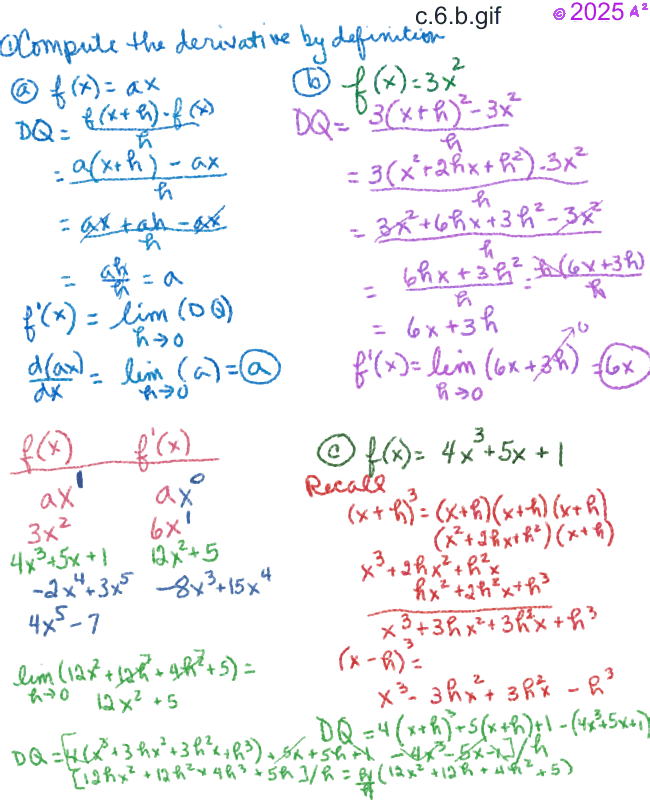 c.6.b.gif
© 2025 A²
① Compute the derivative by definition
ⓐ f(x) = ax
DQ = (f(x+h) - f(x))/h
= (a(x+h) - ax)/h
= (ax + ah - ax)/h
= ah/h = a
f'(x) = lim (DQ)
h→0
d(ax)/dx = lim (a) = a
h→0
ⓑ f(x) = 3x²
DQ = (3(x+h)² - 3x²)/h
= (3(x²+2hx+h²) - 3x²)/h
= (3x²+6hx+3h² - 3x²)/h
= (6hx + 3h²)/h = h(6x+3h)/h
= 6x + 3h
f'(x) = lim (6x+3h) = 6x
h→0
0
f(x) f'(x)
ax¹ ax⁰
3x² 6x¹
4x³+5x+1 12x²+5
-2x⁴+3x⁵ -8x³+15x⁴
4x⁵ - 7
lim (12x² + 12h² + 4h² + 5) =
h→0
12x² + 5
ⓒ f(x) = 4x³+5x+1
Recall
(x+h)³ = (x+h)(x+h)(x+h)
(x²+2hx+h²)(x+h)
x³+2hx²+h²x
hx²+2h²x+h³
x³+3hx²+3h²x+h³
(x-h)³ =
x³ - 3hx² + 3h²x - h³
DQ = 4(x+h)³+5(x+h)+1 - (4x³+5x+1)
DQ = [4(x³+3hx²+3h²x+h³) + 5x+5h+1 - 4x³-5x-1]/h
[12hx² + 12h²x + 4h³ + 5h]/h = h/h (12x² + 12h + 4h² + 5)